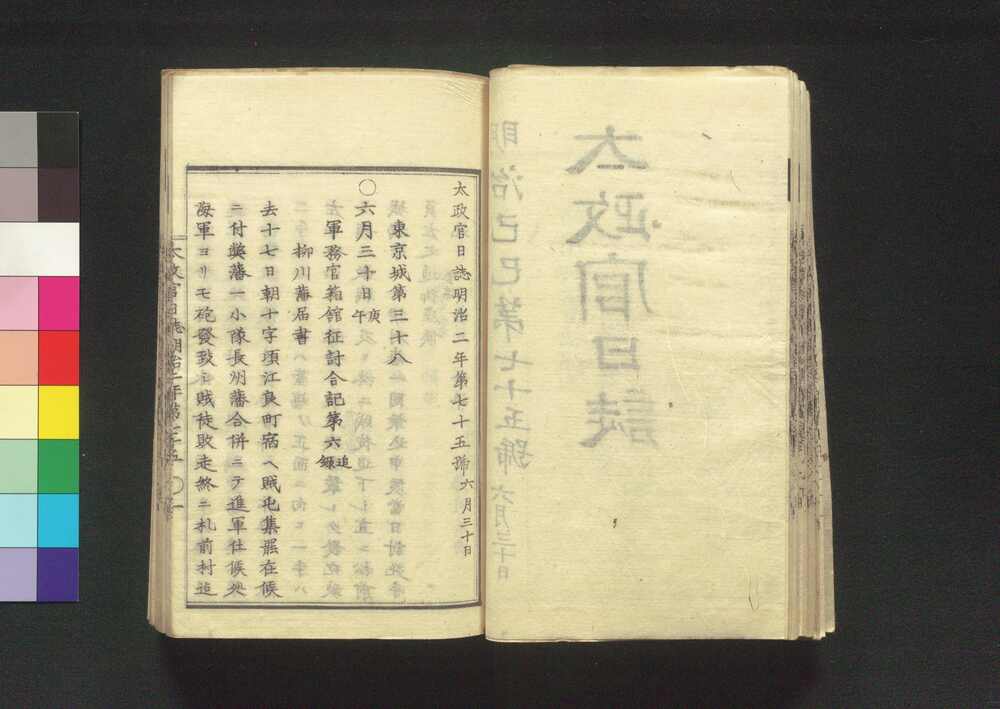 太政官日誌明治二年第七十五號 六月三十日
東京城第三十八
〇六月三十日 庚午
軍務官箱館征討合記第六 追録
柳川藩届書
去十七日朝十字頃江良町宿ヘ賊屯集罷在候
ニ付弊藩一小隊長州藩合併ニテ進軍仕候処
海軍ヨリモ砲發致シ賊徒敗走終ニ札前村迄
太政官日誌明治二年第七十五 〇一
太政官日誌
明治己巳第七十五號 六月三十日